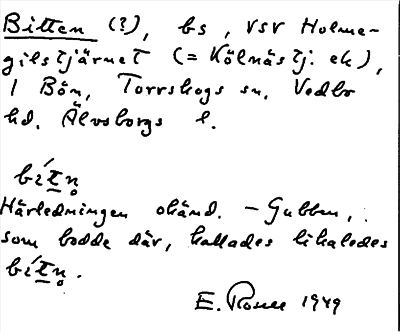 Bitten (?), bs, VSV Holme-
gilstjärnet (= Kölnästj. ek),
1 Bön, Torrskogs sn, Vedbo
hd. Älvsborgs l.
bítn̥
Härledningen okänd. – Gubben,
som bodde där, kallades likaledes
bítn̥.
E. Rosell 1949